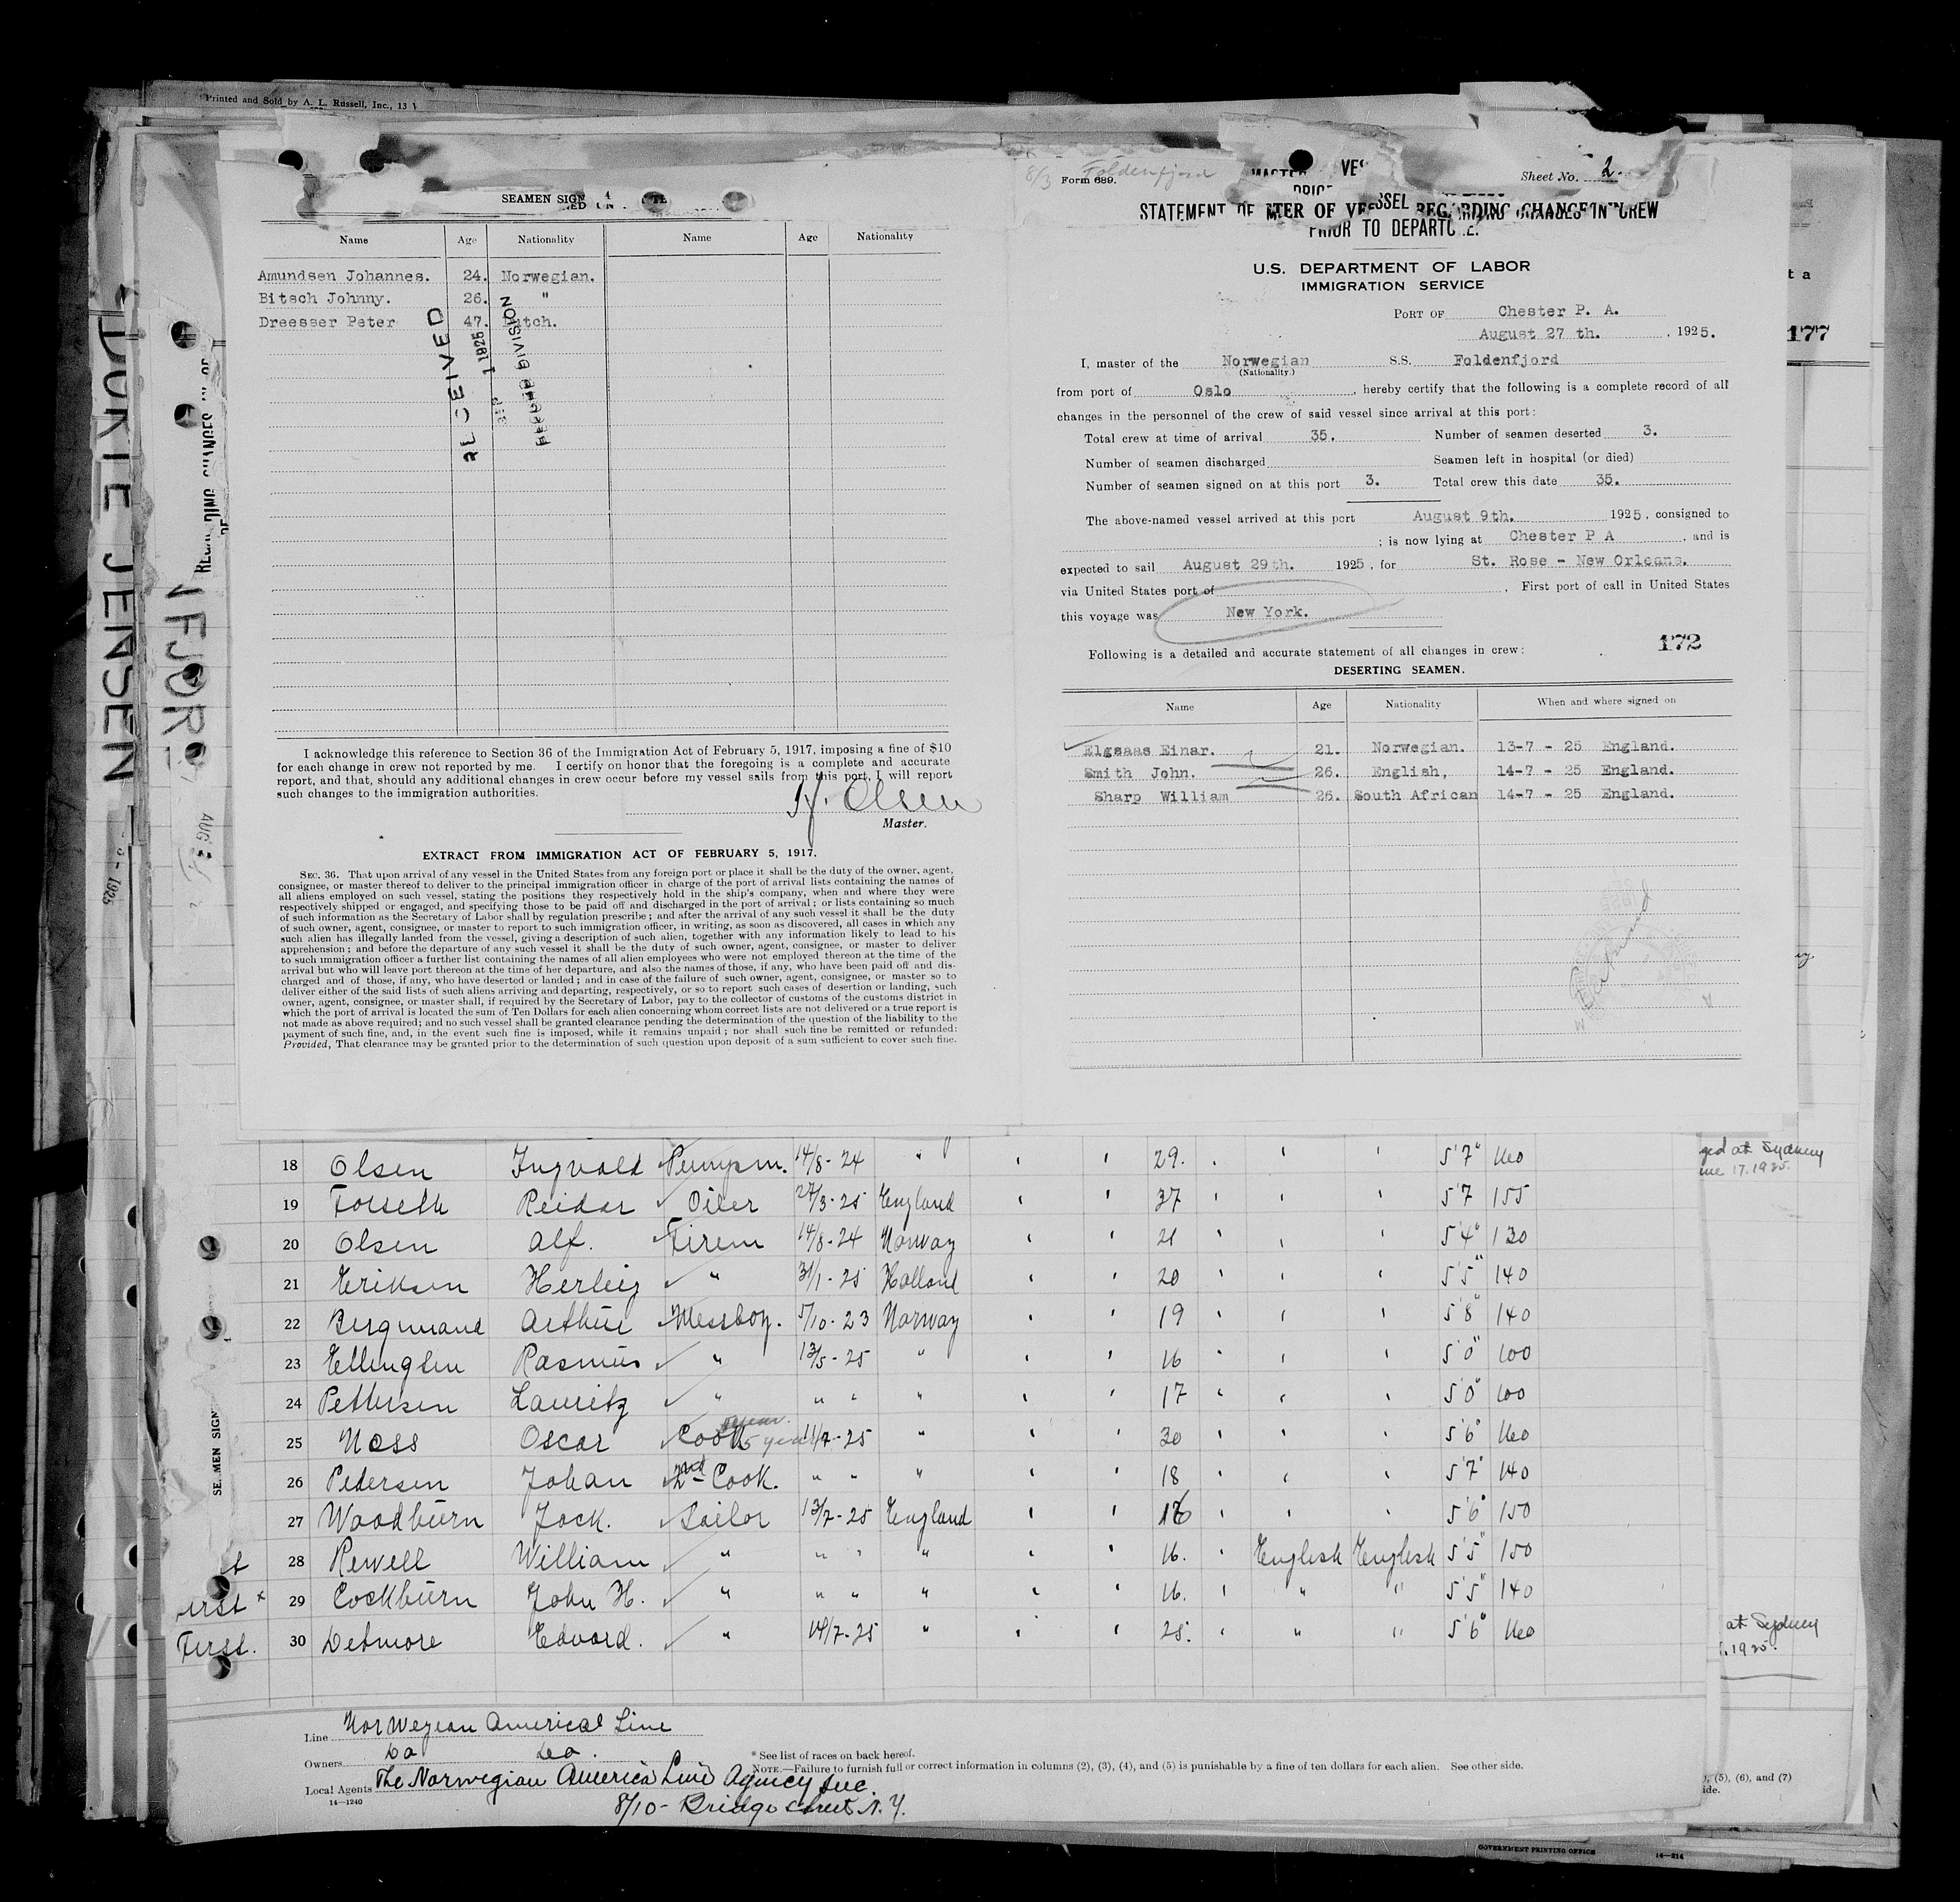 Printed and Sold by A. L. Russell, Inc., 13
SEAMEN SIGNED ON
Name Age Nationality Name Age Nationality
Amundsen Johannes. 24. Norwegian.
Bitsch Johnny. 26. "
Dreesser Peter 47. Dutch.
RECEIVED
SEP 1 1925
DIVISION
I acknowledge this reference to Section 36 of the Immigration Act of February 5, 1917, imposing a fine of $10
for each change in crew not reported by me. I certify on honor that the foregoing is a complete and accurate
report, and that, should any additional changes in crew occur before my vessel sails from this port, I will report
such changes to the immigration authorities.
H. Olsen
Master.
EXTRACT FROM IMMIGRATION ACT OF FEBRUARY 5, 1917.
SEC. 36. That upon arrival of any vessel in the United States from any foreign port or place it shall be the duty of the owner, agent,
consignee, or master thereof to deliver to the principal immigration officer in charge of the port of arrival lists containing the names of
all aliens employed on such vessel, stating the positions they respectively hold in the ship's company, when and where they were
respectively shipped or engaged, and specifying those to be paid off and discharged in the port of arrival; or lists containing so much
of such information as the Secretary of Labor shall by regulation prescribe; and after the arrival of any such vessel it shall be the duty
of such owner, agent, consignee, or master to report to such immigration officer, in writing, as soon as discovered, all cases in which any
such alien has illegally landed from the vessel, giving a description of such alien, together with any information likely to lead to his
apprehension; and before the departure of any such vessel it shall be the duty of such owner, agent, consignee, or master to deliver
to such immigration officer a further list containing the names of all alien employees who were not employed thereon at the time of the
arrival but who will leave port thereon at the time of her departure, and also the names of those, if any, who have been paid off and dis-
charged and of those, if any, who have deserted or landed; and in case of the failure of such owner, agent, consignee, or master so to
deliver either of the said lists of such aliens arriving and departing, respectively, or so to report such cases of desertion or landing, such
owner, agent, consignee, or master shall, if required by the Secretary of Labor, pay to the collector of customs of the customs district in
which the port of arrival is located the sum of Ten Dollars for each alien concerning whom correct lists are not delivered or a true report is
not made as above required; and no such vessel shall be granted clearance pending the determination of the question of the liability to the
payment of such fine, and, in the event such fine is imposed, while it remains unpaid; nor shall such fine be remitted or refunded:
Provided, That clearance may be granted prior to the determination of such question upon deposit of a sum sufficient to cover such fine.
8/3 Form 689. Foldenfjord
Sheet No. 2.
STATEMENT OF MASTER OF VESSEL REGARDING CHANGES IN CREW
PRIOR TO DEPARTURE.
U.S. DEPARTMENT OF LABOR
IMMIGRATION SERVICE
PORT OF Chester P. A.
August 27 th. , 1925.
I, master of the Norwegian S.S. Foldenfjord
(Nationality.)
from port of Oslo , hereby certify that the following is a complete record of all
changes in the personnel of the crew of said vessel since arrival at this port:
Total crew at time of arrival 35. Number of seamen deserted 3.
Number of seamen discharged Seamen left in hospital (or died)
Number of seamen signed on at this port 3. Total crew this date 35.
The above-named vessel arrived at this port August 9th. 1925, consigned to
; is now lying at Chester P A , and is
expected to sail August 29th. 1925, for St. Rose - New Orleans.
via United States port of , First port of call in United States
this voyage was New York.
172
Following is a detailed and accurate statement of all changes in crew:
DESERTING SEAMEN.
Name Age Nationality When and where signed on
Elgsaas Einar. 21. Norwegian. 13-7 - 25 England.
Smith John. 26. English, 14-7 - 25 England.
Sharp William 26. South African 14-7 - 25 England.
177
JENSEN
18 Olsen Ingvald Pumpm. 14/8-24 " ' ' 29. ' ' ' 5'7" 160
19 Forseth Reidar Oiler 27/3-25 England ' ' 37 ' ' ' 5'7 155
20 Olsen Alf. Firem 14/8-24 Norway ' ' 21 ' ' ' 5'4" 130
21 Eriksen Herleig " 31/1-25 Holland ' ' 20 ' ' ' 5'5" 140
22 Bergmand Arthur Messboy. 5/10-23 Norway ' ' 19 ' ' ' 5'8" 140
23 Ellingsen Rasmus " 13/5-25 " ' ' 16 ' ' ' 5'0" 100
24 Pettersen Lauritz " " " " ' ' 17 ' ' ' 5'0" 100
25 Ness Oscar Cook 5 year 11/7-25 " ' ' 30 ' ' ' 5'6" 160
26 Pedersen Johan 2nd Cook. " " " ' ' 18 ' ' ' 5'7" 140
27 Woodburn Jock. Sailor 13/7-25 England ' ' 16 ' ' ' 5'6" 150
28 Rewell William " " " " ' ' 16. ' English English 5'5" 150
First x 29 Cockburn John H. " " " " ' ' 16. ' " " 5'5" 140
First. 30 Detmore Edvard. " 14/7-25 " ' ' 25. ' " " 5'6" 160
at Sydney
17.1925.
at Sydney
1925.
Line Norwegean Americal Line
Owners Do Do.
Local Agents The Norwegian America Line Agency Inc.
8/10- Bridge Street N.Y.
14—1240
* See list of races on back hereof.
NOTE.—Failure to furnish full or correct information in columns (2), (3), (4), and (5) is punishable by a fine of ten dollars for each alien. See other side.
(5), (6), and (7)
GOVERNMENT PRINTING OFFICE 14—214